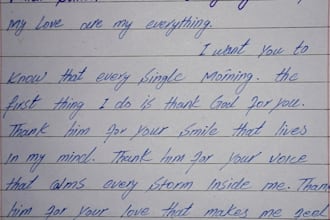 my love are my everything.
I want you to
know that every single morning. the
first thing I do is thank God for you.
Thank him for your smile that lives
in my mind. Thank him for your voice
that calms every storm inside me. Than
him for your love that makes me feel